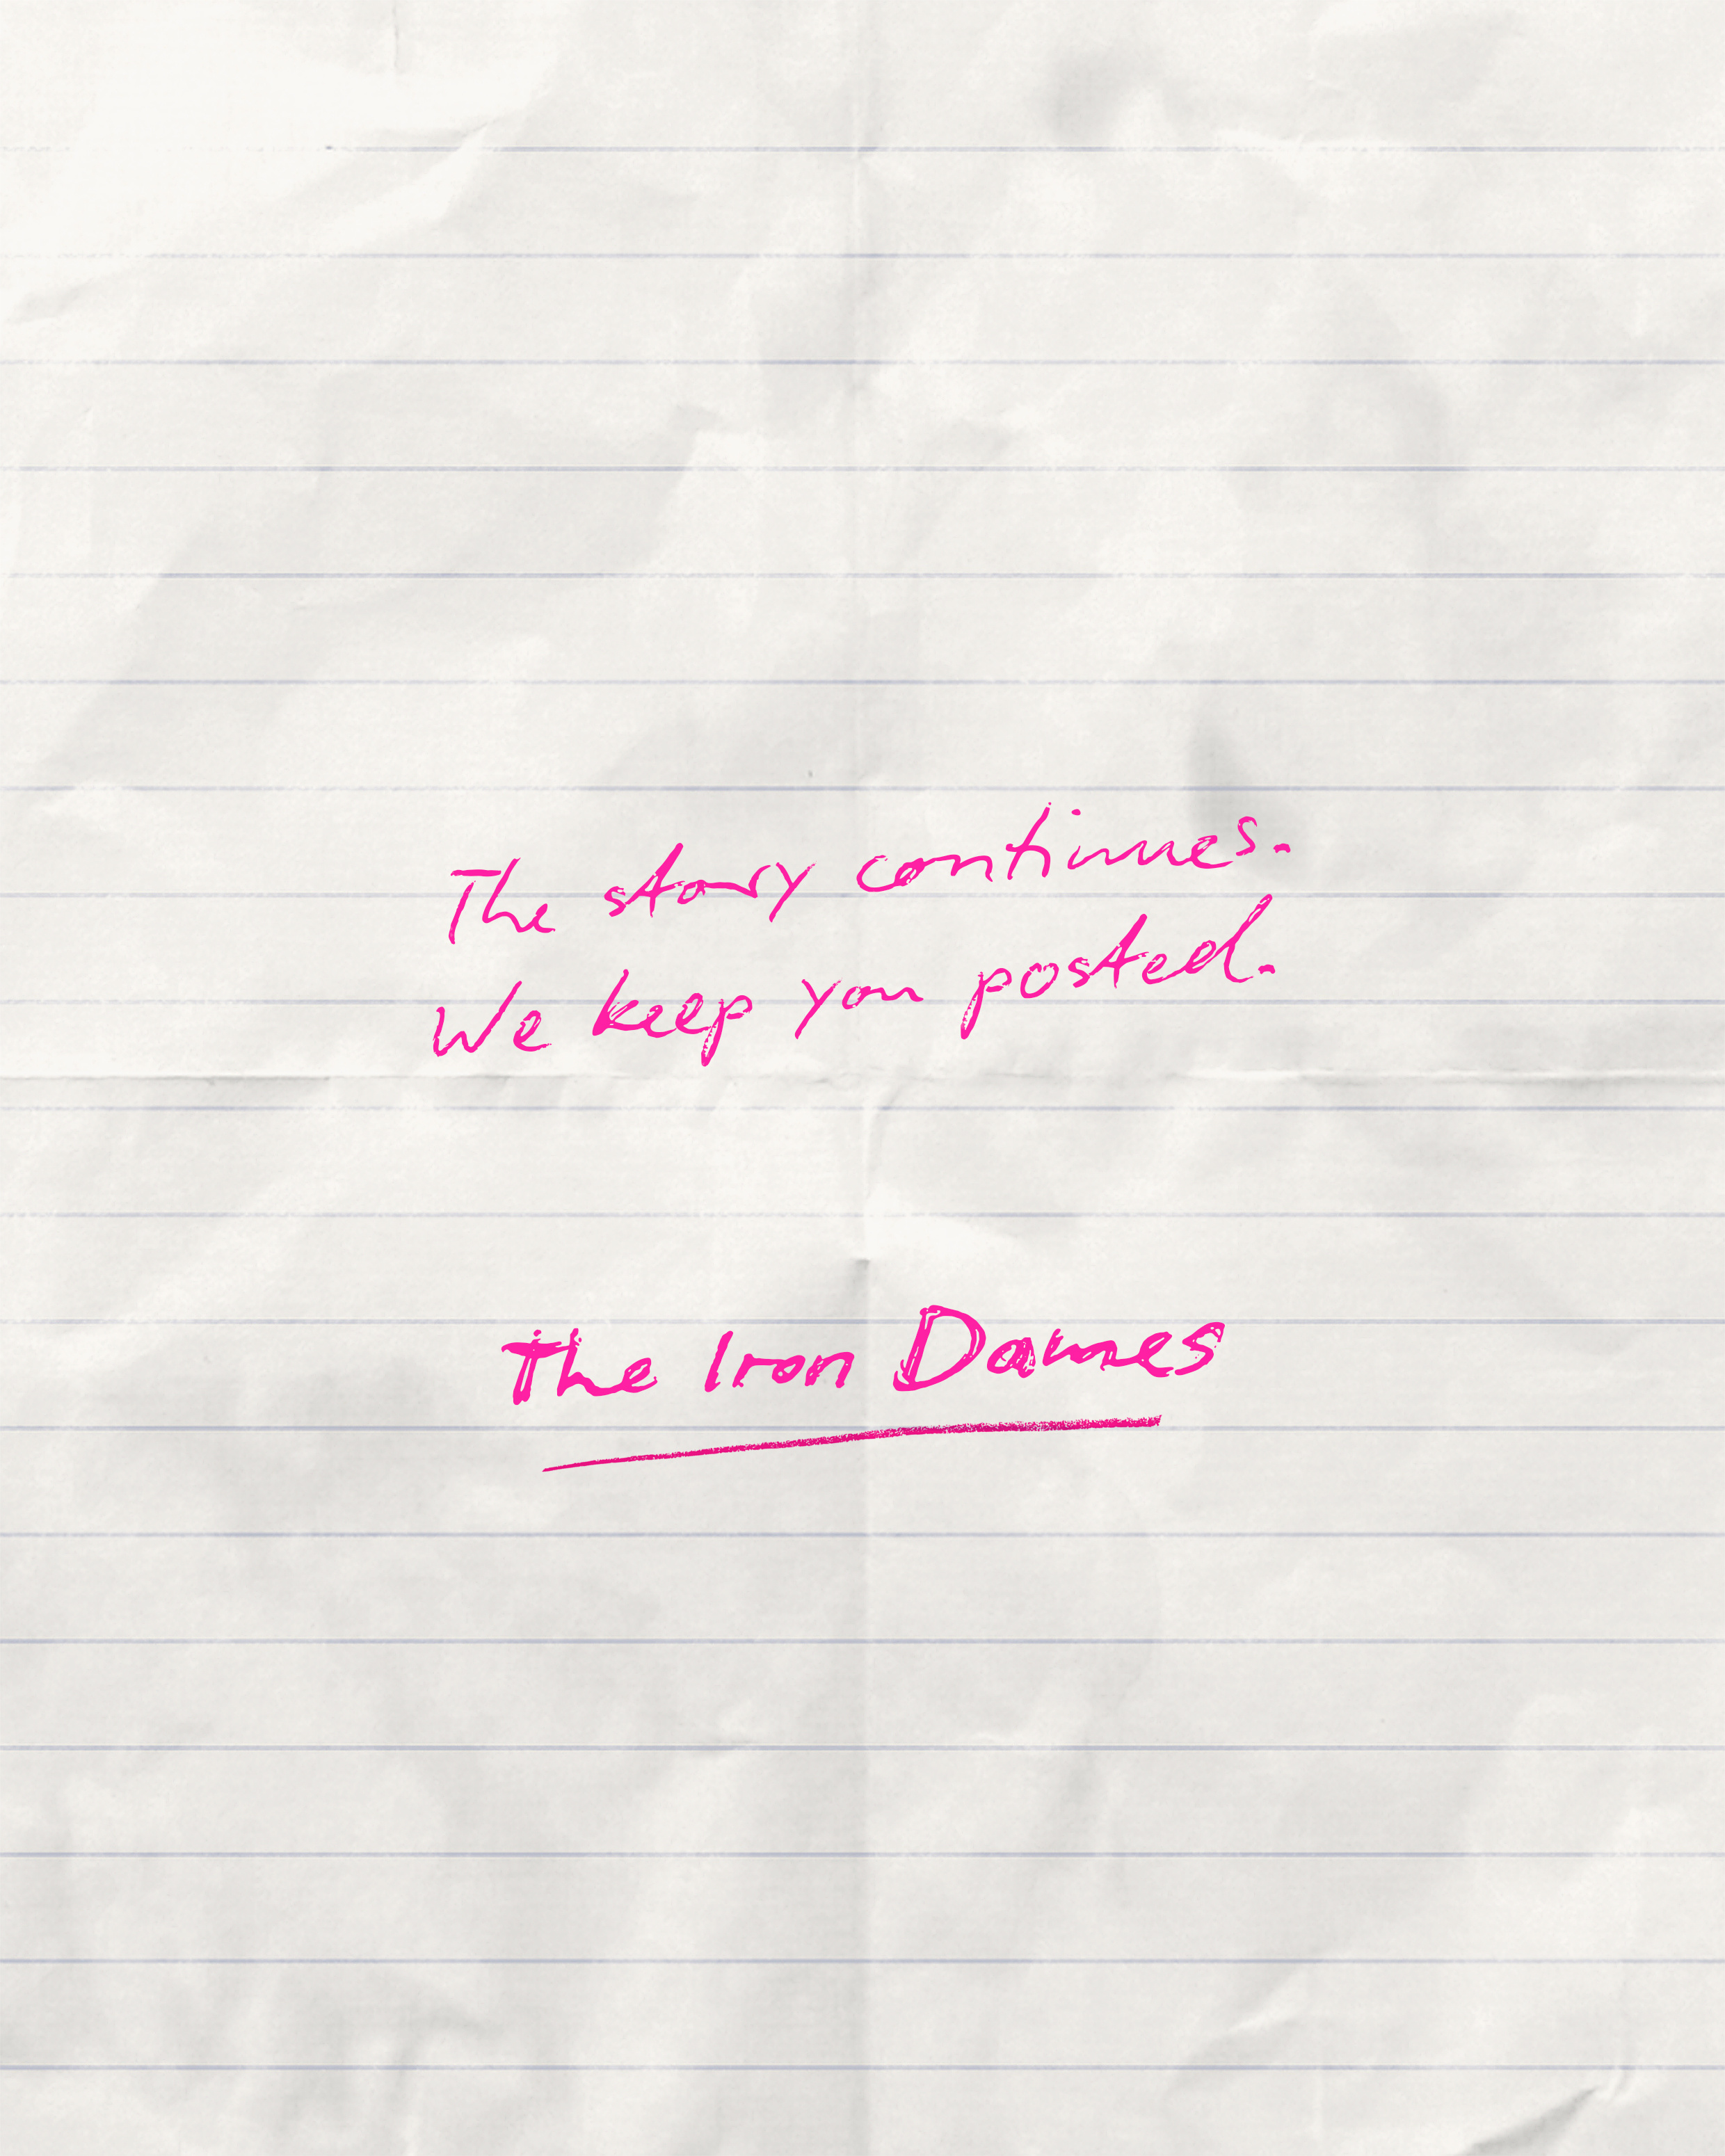 The story continues.
We keep you posted.
The Iron Dames